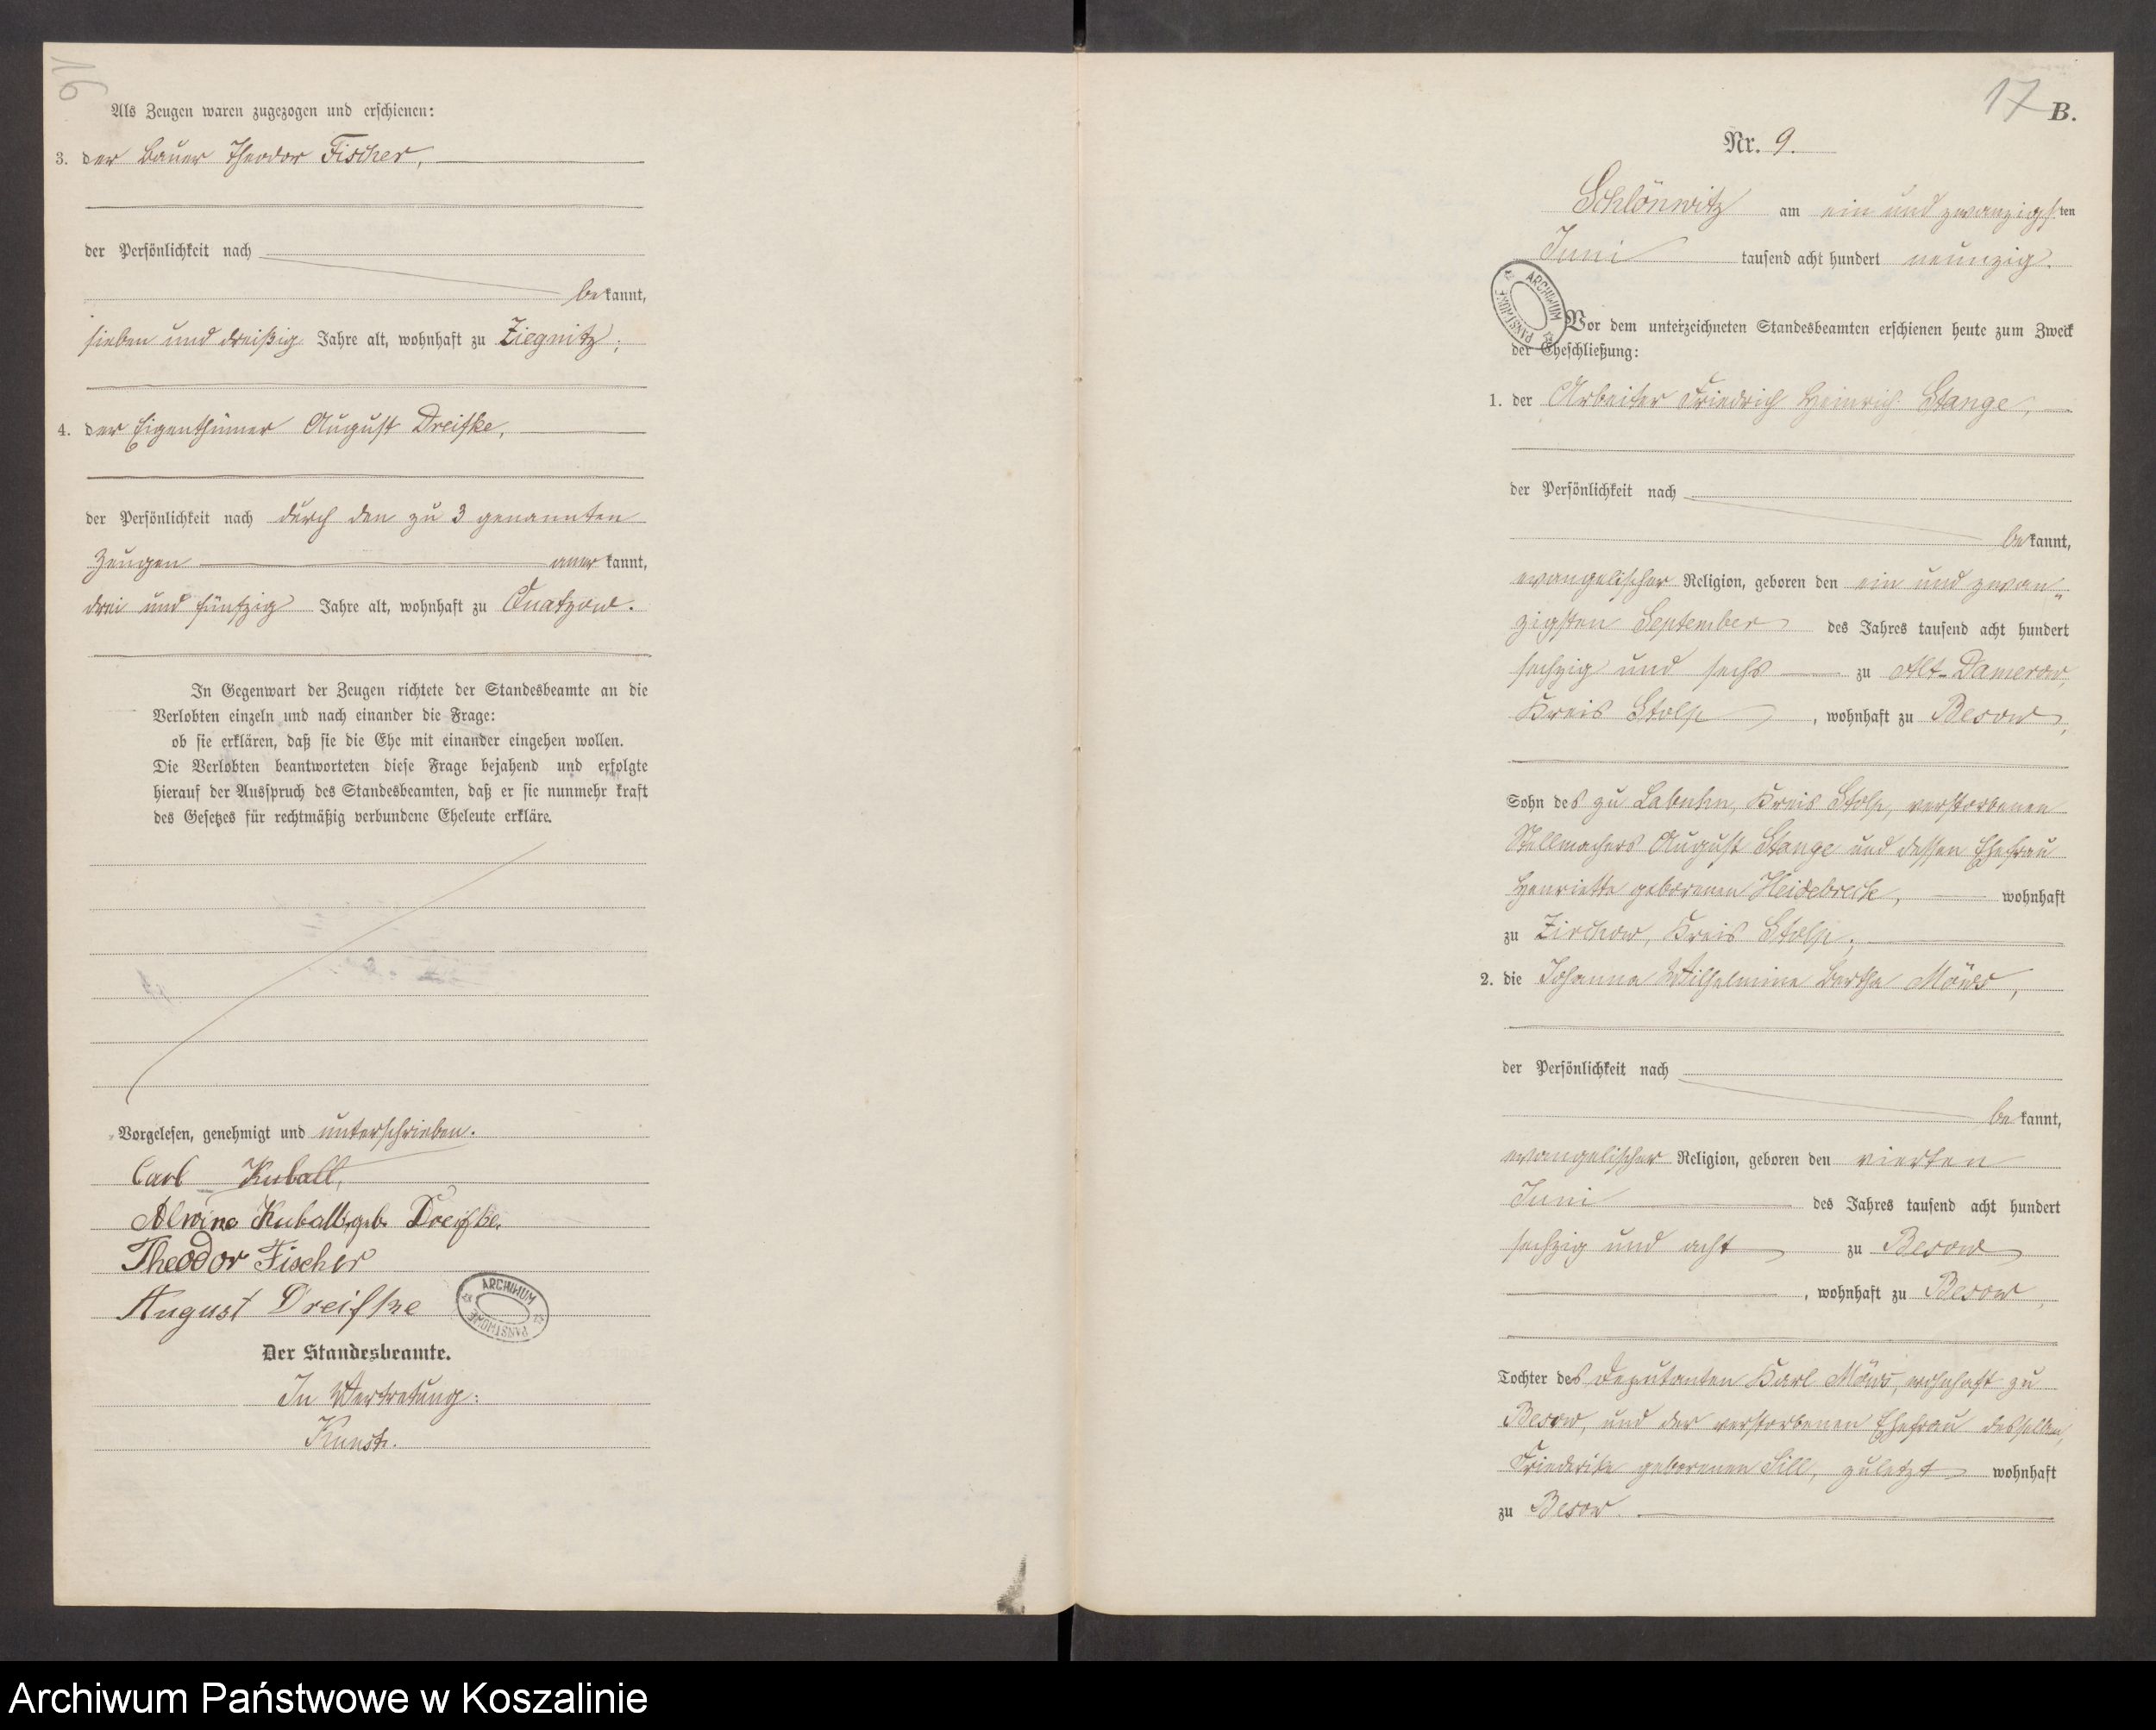 Als Zeugen waren zugezogen und erschienen:
3. der Bauer Theodor Fischer,
der Persönlichkeit nach
bekannt,
sieben und dreißig Jahre alt, wohnhaft zu Ziegnitz;
4. der Eigenthümer August Dreifke,
der Persönlichkeit nach durch den zu 3 genannten
Zeugen anerkannt,
drei und fünfzig Jahre alt, wohnhaft zu Quatzow.
In Gegenwart der Zeugen richtete der Standesbeamte an die
Verlobten einzeln und nach einander die Frage:
ob sie erklären, daß sie die Ehe mit einander eingehen wollen.
Die Verlobten beantworteten diese Frage bejahend und erfolgte
hierauf der Ausspruch des Standesbeamten, daß er sie nunmehr kraft
des Gesetzes für rechtmäßig verbundene Eheleute erkläre.
Vorgelesen, genehmigt und unterschrieben.
Carl Kuball,
Alwine Kuball, geb. Dreifke.
Theodor Fischer
August Dreifke
ARCHIWUM PAŃSTWOWE
Der Standesbeamte.
In Vertretung:
17
B.
Nr. 9.
Schlönwitz am ein und zwanzigsten
Juni tausend acht hundert neunzig.
ARCHIWUM PAŃSTWOWE
Vor dem unterzeichneten Standesbeamten erschienen heute zum Zweck
der Eheschließung:
1. der Arbeiter Friedrich Heinrich Stange,
der Persönlichkeit nach
bekannt,
evangelischer Religion, geboren den ein und zwan„
zigsten September des Jahres tausend acht hundert
sechzig und sechs zu Alt-Damerow,
Kreis Stolp, wohnhaft zu Besow,
Sohn des zu Labuhn, Kreis Stolp, verstorbenen
Stellmachers August Stange und dessen Ehefrau
Henriette geborenen Heidebreck, wohnhaft
zu Zirchow, Kreis Stolp;
2. die Johanna Wilhelmine Bertha Möws,
der Persönlichkeit nach
bekannt,
evangelischer Religion, geboren den vierten
Juni des Jahres tausend acht hundert
sechzig und acht zu Besow
, wohnhaft zu Besow,
Tochter des Deputanten Karl Möws, wohnhaft zu
Besow, und der verstorbenen Ehefrau desselben,
Friederike geborenen Sill, zuletzt wohnhaft
zu Besow.
Archiwum Państwowe w Koszalinie